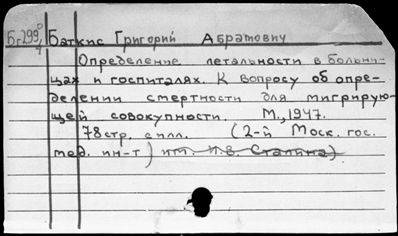 Бг299 Баткис Григорий Абрамович
7
Определение летальности в больни-
цах и госпиталях. К вопросу об опре-
делении смертности для мигрирую-
щей совокупности. М., 1947.
78 стр. с илл. (2-й Моск. гос.
мед. ин-т) им. И.В. Сталина)